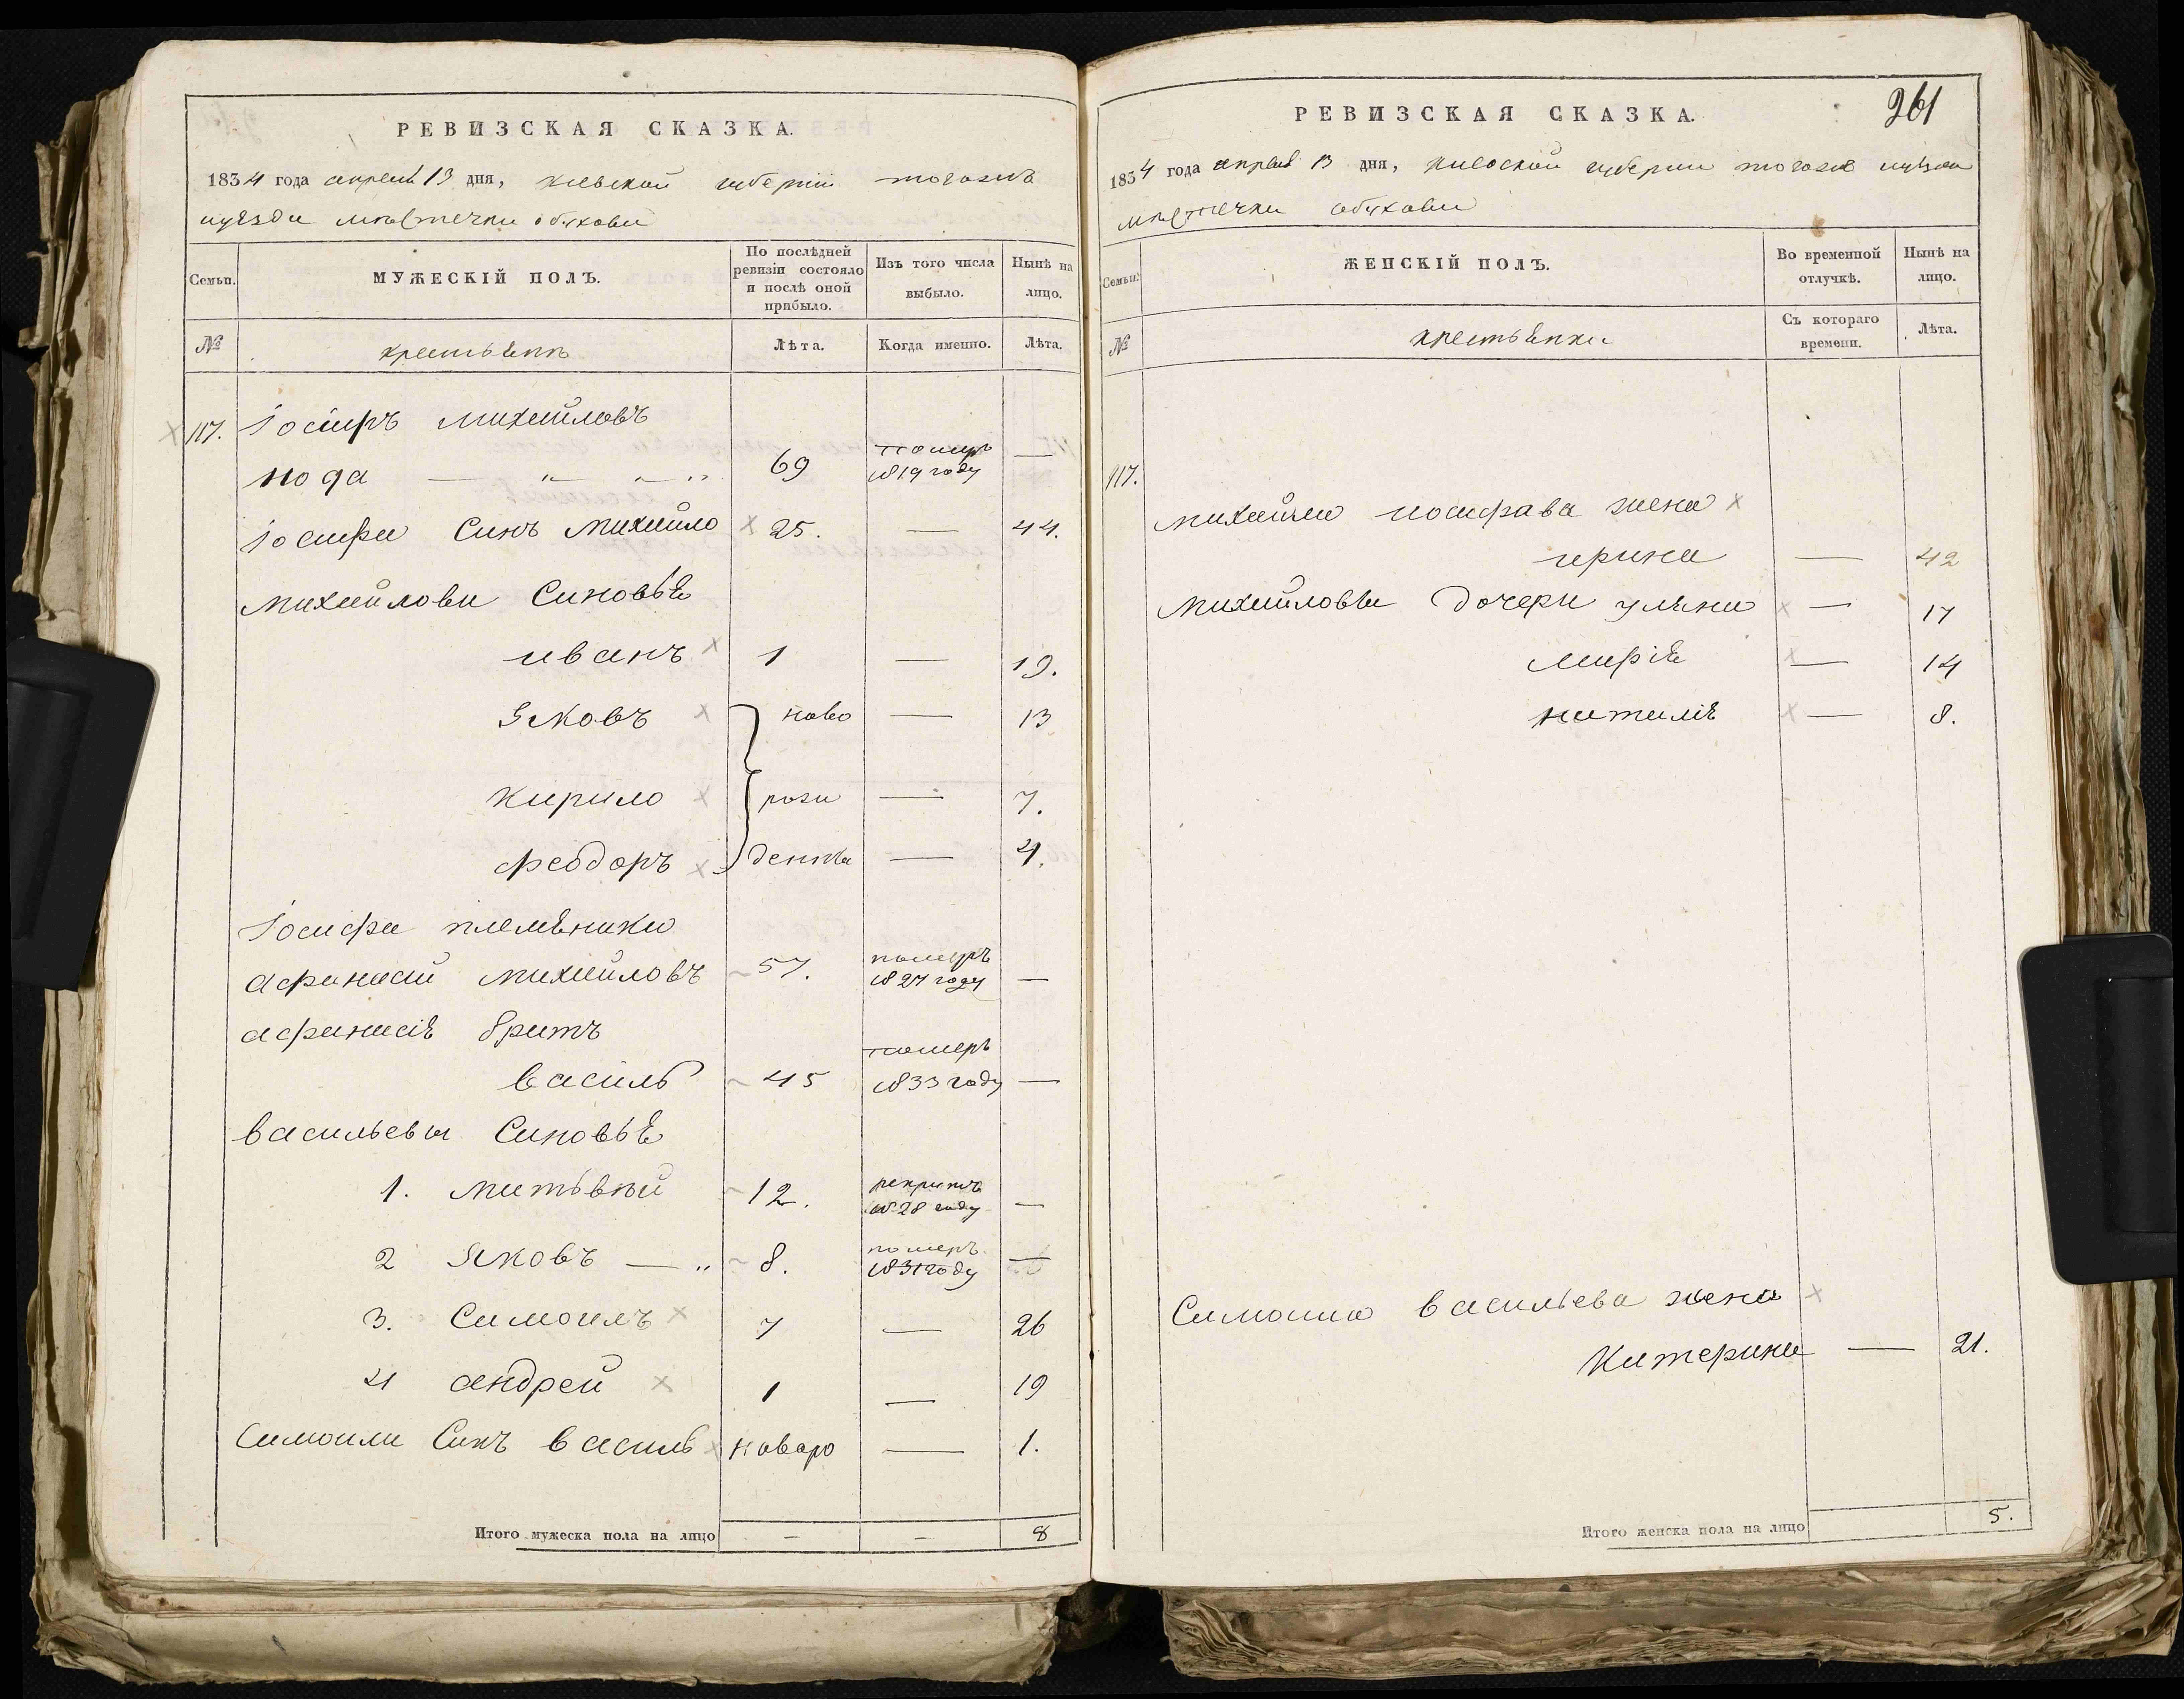 РЕВИЗСКАЯ СКАЗКА.
1834 года апреля 13 дня, киевской губернии тогожъ
уезда местечка обухова
Семьи.
МУЖЕСКІЙ ПОЛЪ.
По послѣдней ревизіи состояло и послѣ оной прибыло.
Изъ того числа выбыло.
Нынѣ на лицо.
№
крестьянъ
Лѣта.
Когда именно.
Лѣта.
117. Іосифъ михайловъ
69 померъ 1819 году —
Іосифа Синъ михайло 25. — 44.
михайлова Синовья
иванъ 1 — 19.
Яковъ ново — 13
кирило рож — 7.
феодоръ денна — 4.
Іосифа племяники
афанасій михайловъ 57. померъ 1827 году —
афанасія братъ
василь 45 померъ 1833 году —
васильевы Синовья
1. матьвѣй 12. рекрутъ 1828 году —
2 Яковъ — 8. померъ 1831 году —
3. Самоилъ 7 — 26
4 андрей 1 — 19
Самоила Синъ василь новоро — 1.
Итого мужеска пола на лицо — — 8
261
РЕВИЗСКАЯ СКАЗКА.
1834 года апреля 13 дня, киевской губернии тогожъ уезда
местечка обухова
Семьи.
ЖЕНСКІЙ ПОЛЪ.
Во временной отлучкѣ.
Нынѣ на лицо.
№
крестьянки
Съ котораго времени.
Лѣта.
117.
михайла иосифава жена
ирина — 42
михайловы дочери уляна — 17
марія — 14
наталія — 8.
Самоила васильева жена
Катерина — 21.
Итого женска пола на лицо 5.